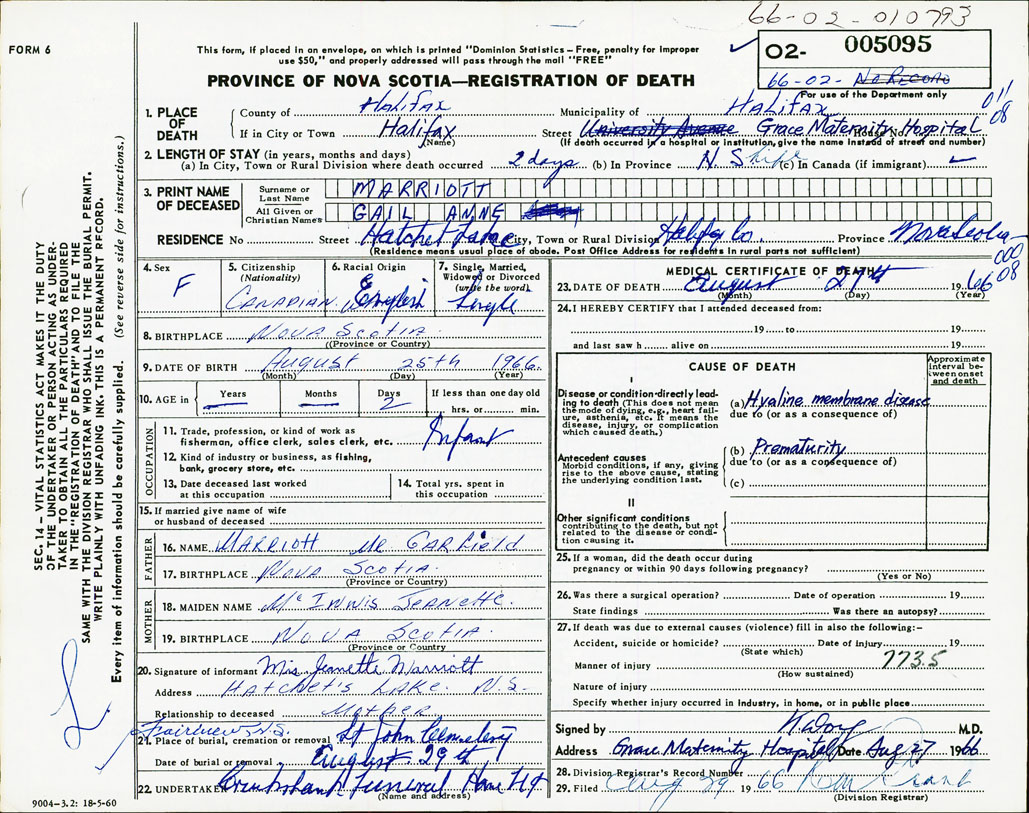 66-02-010793
FORM 6
This form, if placed in an envelope, on which is printed "Dominion Statistics—Free, penalty for improper
use $50," and properly addressed will pass through the mail "FREE"
02- 005095
66-02- No Record
For use of the Department only
PROVINCE OF NOVA SCOTIA—REGISTRATION OF DEATH
011
08
1. PLACE OF DEATH
County of Halifax Municipality of Halifax
If in City or Town Halifax Street University Avenue Grace Maternity House No. Hospital
(Name) (If death occurred in a hospital or institution, give the name instead of street and number)
2. LENGTH OF STAY (in years, months and days)
(a) In City, Town or Rural Division where death occurred 2 days (b) In Province N S life (c) In Canada (if immigrant)
3. PRINT NAME OF DECEASED
Surname or Last Name MARRIOTT
All Given or Christian Names GAIL ANNE
RESIDENCE No Street Hatchet Lake City, Town or Rural Division Halifax Co. Province Nova Scotia
(Residence means usual place of abode. Post Office Address for residents in rural parts not sufficient)
000
08
4. Sex F
5. Citizenship (Nationality) CANADIAN
6. Racial Origin English
7. Single, Married, Widowed or Divorced (write the word) Single
8. BIRTHPLACE NOVA SCOTIA
(Province or Country)
9. DATE OF BIRTH August 25th 1966
(Month) (Day) (Year)
10. AGE in Years Months Days 2 If less than one day old
hrs. or min.
OCCUPATION
11. Trade, profession, or kind of work as
fisherman, office clerk, sales clerk, etc. Infant
12. Kind of industry or business, as fishing,
bank, grocery store, etc.
13. Date deceased last worked
at this occupation
14. Total yrs. spent in
this occupation
15. If married give name of wife
or husband of deceased
FATHER
16. NAME MARRIOTT Mr GARFIELD
17. BIRTHPLACE NOVA SCOTIA
(Province or Country)
MOTHER
18. MAIDEN NAME McINNIS JEANETTE.
19. BIRTHPLACE NOVA SCOTIA
(Province or Country)
20. Signature of informant Mrs Jeanette Marriott
Address HATCHET'S LAKE. N.S.
Relationship to deceased MOTHER
Fairview N.S.
21. Place of burial, cremation or removal St John Cemetery
Date of burial or removal August 29th
22. UNDERTAKER Cruikshank Funeral Home
(Name and address)
9004-3.2: 18-5-60
MEDICAL CERTIFICATE OF DEATH
23. DATE OF DEATH August 27th 1966
(Month) (Day) (Year)
24. I HEREBY CERTIFY that I attended deceased from:
19 to 19
and last saw h alive on 19
CAUSE OF DEATH
Approximate interval between onset and death
I
Disease or condition directly leading to death (This does not mean the mode of dying, e.g., heart failure, asthenia, etc. It means the disease, injury, or complication which caused death.)
(a) Hyaline membrane disease
due to (or as a consequence of)
Antecedent causes
Morbid conditions, if any, giving rise to the above cause, stating the underlying condition last.
(b) Prematurity
due to (or as a consequence of)
(c)
II
Other significant conditions
contributing to the death, but not related to the disease or condition causing it.
25. If a woman, did the death occur during
pregnancy or within 90 days following pregnancy?
(Yes or No)
26. Was there a surgical operation? Date of operation 19
State findings Was there an autopsy?
27. If death was due to external causes (violence) fill in also the following:-
Accident, suicide or homicide? Date of injury 19
(State which)
Manner of injury 773.5
(How sustained)
Nature of injury
Specify whether injury occurred in industry, in home, or in public place
Signed by M.D.
Address Grace Maternity Hospital Date Aug 27 1966
28. Division Registrar's Record Number
29. Filed Aug 29 1966
(Division Registrar)
SEC. 14—VITAL STATISTICS ACT MAKES IT THE DUTY
OF THE UNDERTAKER OR PERSON ACTING AS UNDER-
TAKER TO OBTAIN ALL THE PARTICULARS REQUIRED
IN THE "REGISTRATION OF DEATH" AND TO FILE THE
SAME WITH THE DIVISION REGISTRAR WHO SHALL ISSUE THE BURIAL PERMIT.
WRITE PLAINLY WITH UNFADING INK. THIS IS A PERMANENT RECORD.
Every item of information should be carefully supplied. (See reverse side for instructions.)